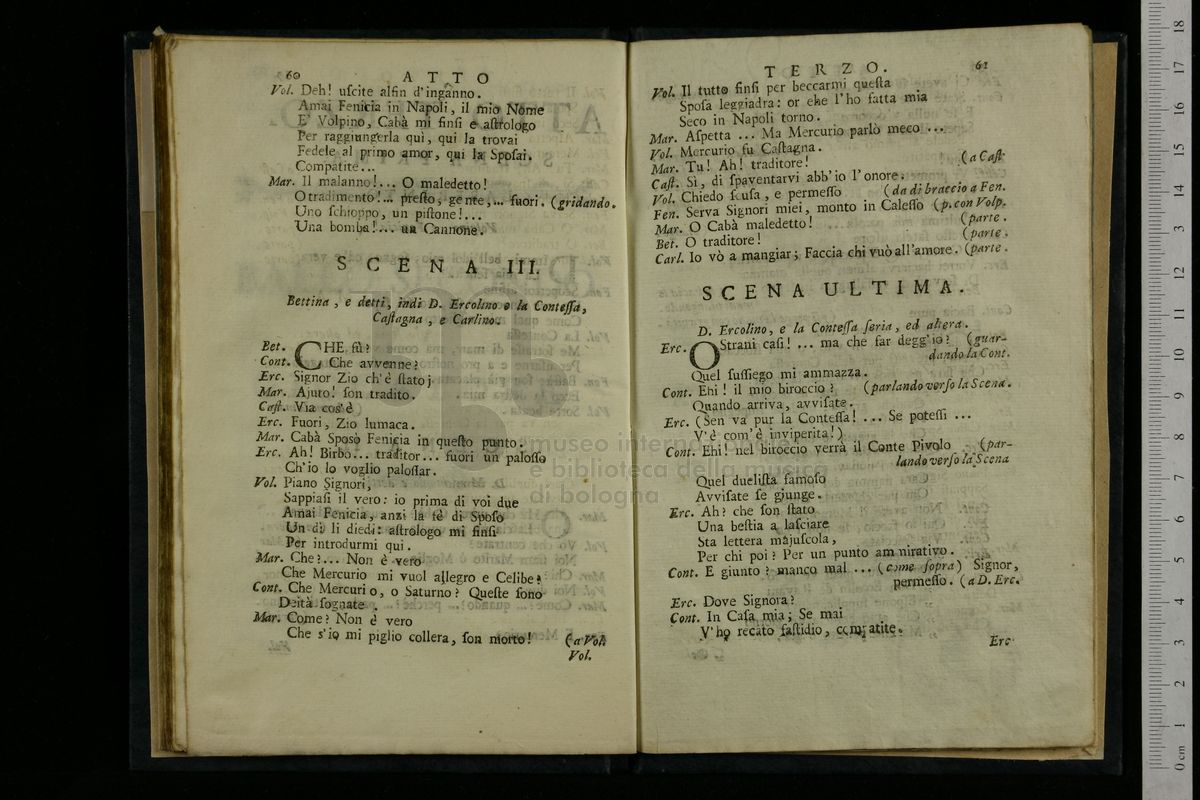 60 ATTO
Vol. Deh! uſcite alfin d'inganno.
Amai Fenicia in Napoli, il mio Nome
E' Volpino, Cabà mi finſi e aſtrologo
Per raggiungerla qui, qui la trovai
Fedele al primo amor, qui la Spoſai.
Compatite...
Mar. Il malanno!... O maledetto!
O tradimento!... preſto, gente,... fuori. (gridando.
Uno ſchioppo, un piſtone!...
Una bomba!... un Cannone.
SCENA III.
Bettina, e detti, indi D. Ercolino e la Conteſſa,
Caſtagna, e Carlino.
Bet. CHE fù?
Cont. Che avvenne?
Erc. Signor Zio ch'è ſtato;
Mar. Ajuto! ſon tradito.
Caſt. Via cos'è
Erc. Fuori, Zio lumaca.
Mar. Cabà Sposò Fenicia in queſto punto.
Erc. Ah! Birbo... traditor... fuori un paloſſo
Ch'io lo voglio paloſſar.
Vol. Piano Signori,
Sappiaſi il vero: io prima di voi due
Amai Fenicia, anzi la fè di Spoſo
Un dì li diedi: aſtrologo mi finſi
Per introdurmi qui.
Mar. Che?... Non è vero
Che Mercurio mi vuol allegro e Celibe?
Cont. Che Mercurio, o Saturno? Queſte ſono
Deità ſognate.
Mar. Come? Non è vero
Che s'io mi piglio collera, ſon morto! (a Vol.
Vol.
TERZO. 61
Vol. Il tutto finſi per beccarmi queſta
Spoſa leggiadra: or che l'ho fatta mia
Seco in Napoli torno.
Mar. Aſpetta ... Ma Mercurio parlò meco ...
Vol. Mercurio fu Caſtagna.
Mar. Tu! Ah! traditore! (a Caſt.
Caſt. Sì, di ſpaventarvi abb'io l'onore.
Vol. Chiedo ſcuſa, e permeſſo (da di braccio a Fen.
Fen. Serva Signori miei, monto in Caleſſo (p. con Volp.
Mar. O Cabà maledetto! (parte.
Bet. O traditore! (parte.
Carl. Io vò a mangiar; Faccia chi vuò all'amore. (parte.
SCENA ULTIMA.
D. Ercolino, e la Conteſſa ſeria, ed altera.
Erc. OStrani caſi! ... ma che far degg'io? (guar-
dando la Cont.
Quel ſuſſiego mi ammazza.
Cont. Ehi! il mio biroccio? (parlando verſo la Scena.
Quando arriva, avviſate.
Erc. (Sen va pur la Conteſſa! ... Se poteſſi ...
V'è com'è inviperita!)
Cont. Ehi! nel biroccio verrà il Conte Pivolo (par-
lando verſo la Scena
Quel dueliſta famoſo
Avviſate ſe giunge.
Erc. Ah? che ſon ſtato
Una beſtia a laſciare
Sta lettera màjuſcola,
Per chi poi? Per un punto ammirativo.
Cont. E giunto? manco mal ... (come ſopra) Signor,
permeſſo. (a D. Erc.
Erc. Dove Signora?
Cont. In Caſa mia; Se mai
V'ho recato faſtidio, compatite.
Erc
museo internazionale
e biblioteca della musica
di bologna
18
17
16
15
14
13
12
11
10
9
8
7
6
5
4
3
2
1
0 cm